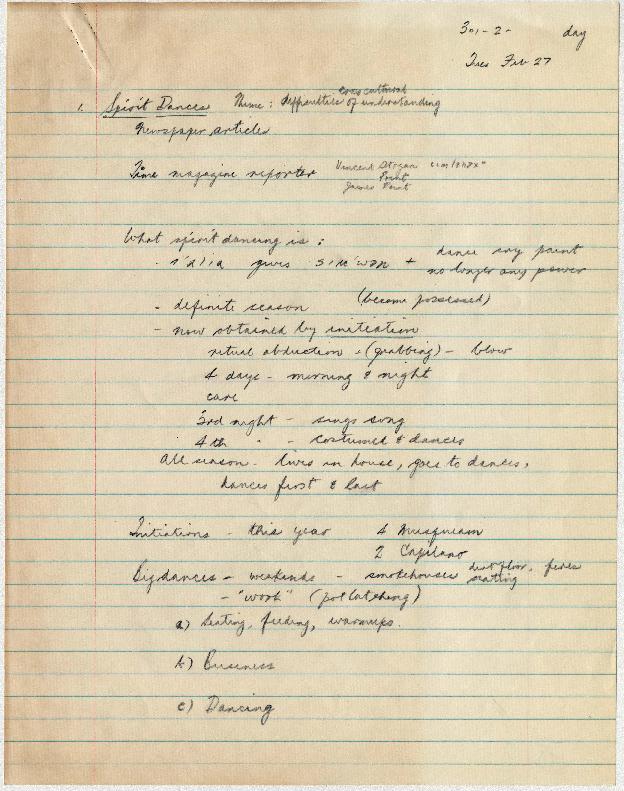 301-2- day
Tues Feb 27
1. Spirit Dances Theme: difficulties of cross cultural understanding
Newspaper articles
Time magazine reporter Vincent Stogan
Point
James Point
What spirit dancing is:
- gives + dance any point
no longer any power
- definite season (become possessed)
- now obtained by initiation
ritual abduction - (grabbing) - blow
4 days - morning & night
care
3rd night - sings song
4th " - costumed & dances
All season - lives in house, goes to dances,
dances first & last
Initiations - this year 4 Musqueam
2 Capilano
Big dances - weekends - smokehouses dirt floor, fires
seating
- "work" (potlatching)
a) Seating, feeding, warmups.
b) Business
c) Dancing